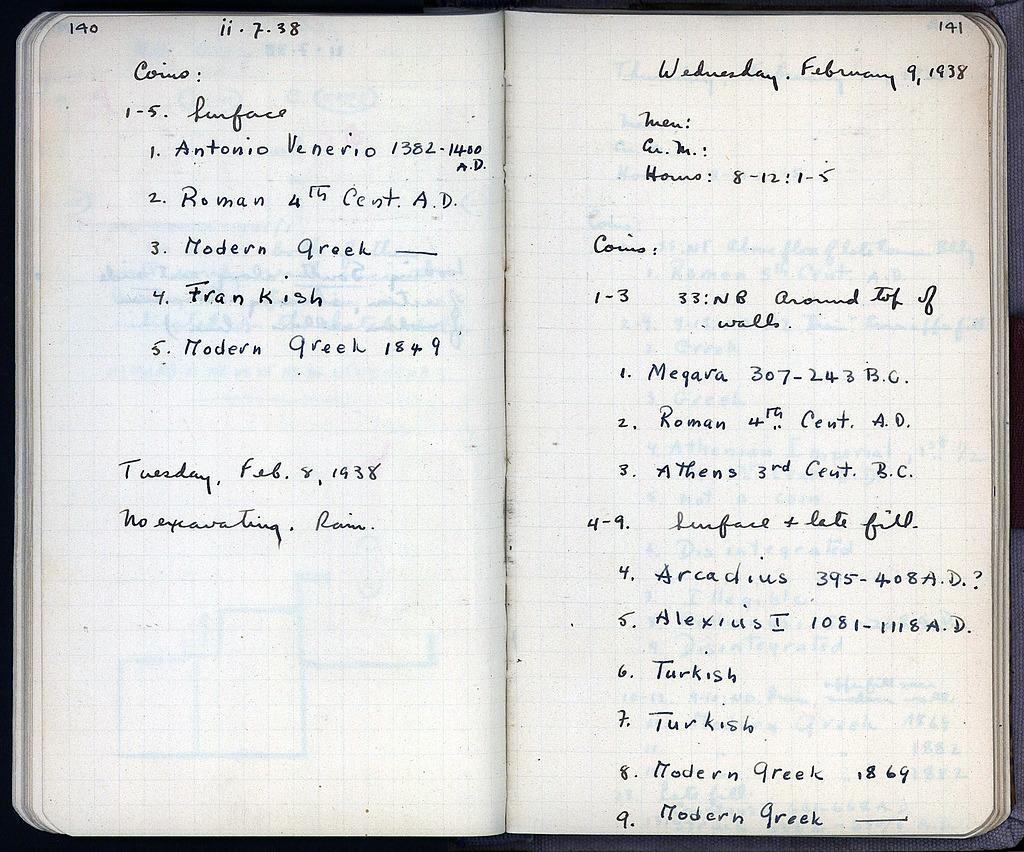 140
ii.7.38
Coins:
1-5. Surface
1. Antonio Venerio 1382-1400
A.D.
2. Roman 4TH Cent. A.D.
3. Modern Greek —
4. Frankish
5. Modern Greek 1849
Tuesday, Feb. 8, 1938
No excavating. Rain.
141
Wednesday. February 9, 1938
Men:
Gr. M.:
Hours: 8-12: 1-5
Coins:
1-3 33:NB Around top of
walls.
1. Megara 307-243 B.C.
2. Roman 4TH Cent. A.D.
3. Athens 3rd Cent. B.C.
4-9. Surface + late fill.
4. Arcadius 395-408 A.D.?
5. Alexius I 1081-1118 A.D.
6. Turkish
7. Turkish
8. Modern Greek 1869
9. Modern Greek —